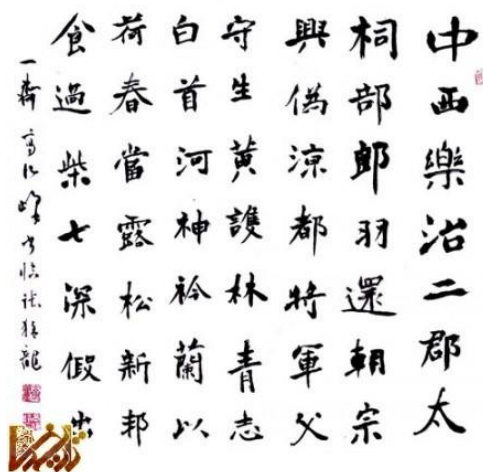 中西樂治二郡太
桐部郎羽還朝宗
興偽涼都將軍父
守生黄護林青志
白首河神衿蘭以
荷春當露松新邦
食過柴七深假出
一齋
臨
龍